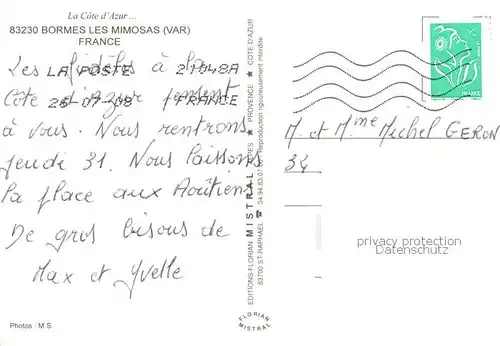 La Côte d'Azur ...
83230 BORMES LES MIMOSAS (VAR)
FRANCE
LA POSTE 21048A
26-07-08 FRANCE
Les fidèles à la
Côte d'azur pensent
à vous. Nous rentrons
jeudi 31. Nous laissons
la place aux Aoûtiens
De gros bisous de
Max et Yvelle
Photos M.S.
EDITIONS FLORIAN MISTRAL ALPES • PROVENCE • COTE D'AZUR
83700 ST-RAPHAEL ☎ 04.94.83.07 Reproduction rigoureusement interdite
FLORIAN
MISTRAL
FRANCE
M. et Mme Michel GERON
34
privacy protection
Datenschutz